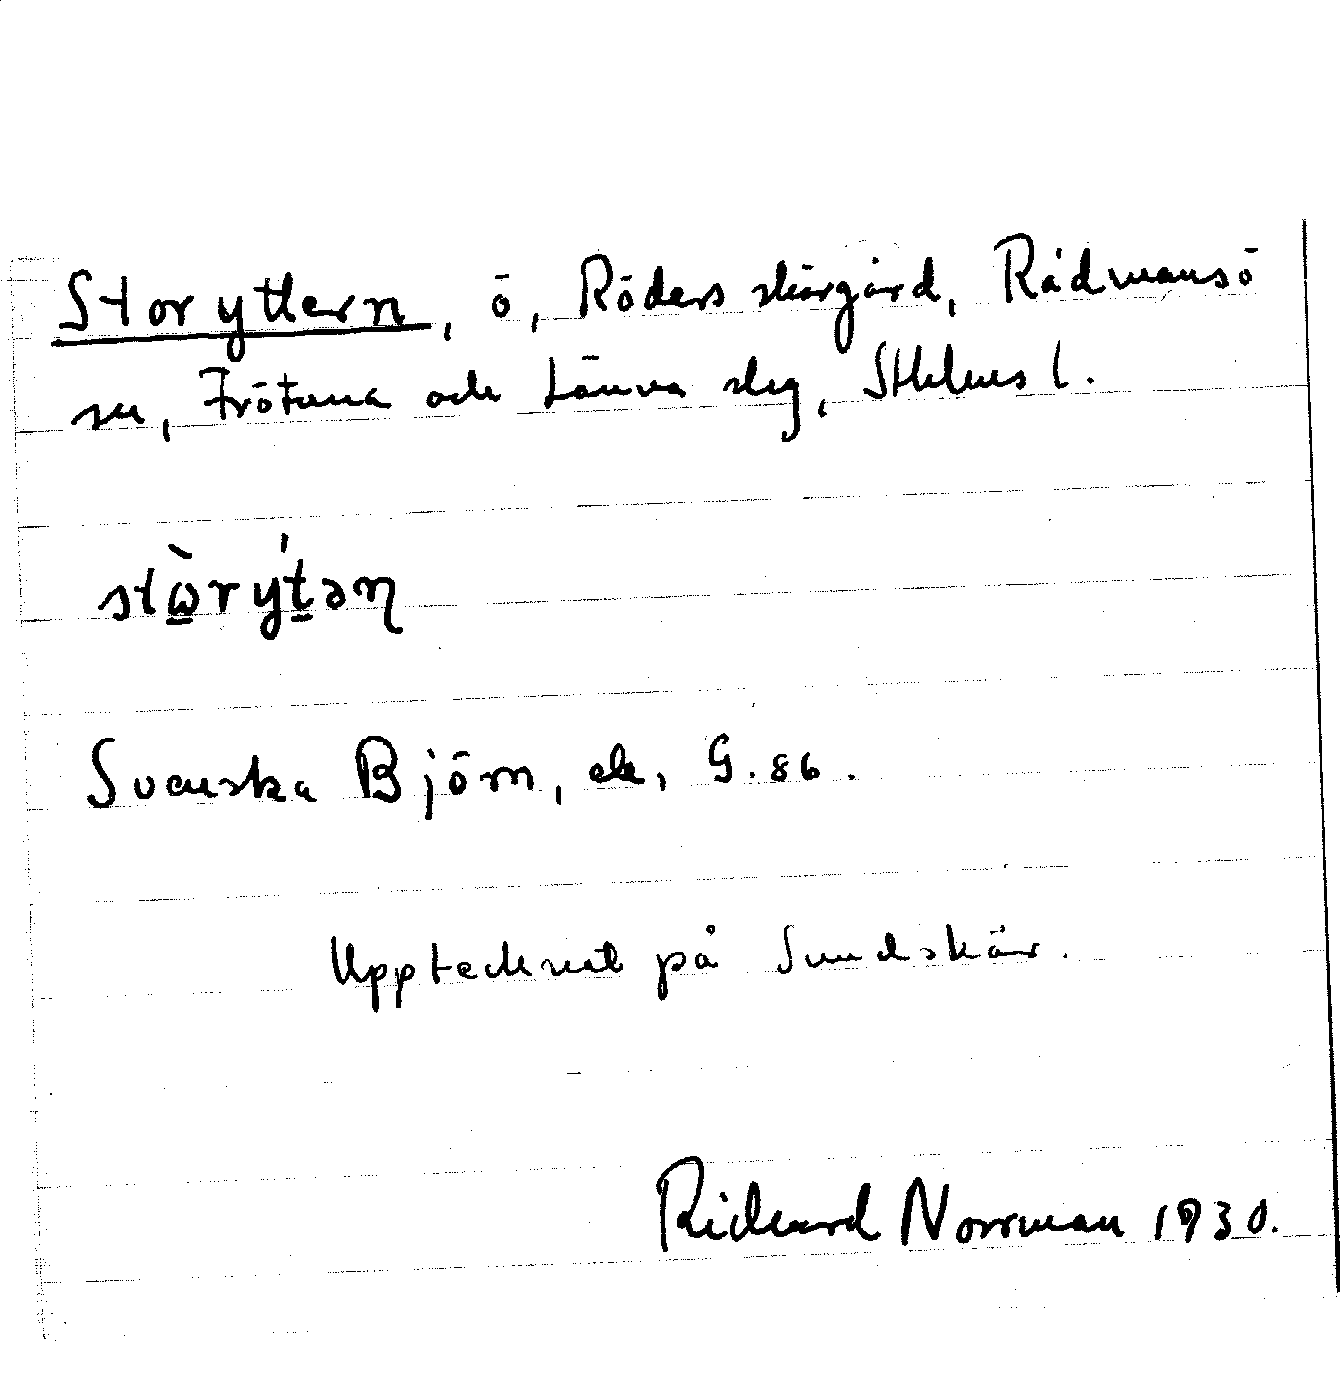 Storyttern, ö, Röders skärgård, Rådmansö
sn, Frötuna och Länna slg, Sthlms l.
stὼ̠rýt̠əɳ
Svenska Björn, ek, G. 86.
Upptecknat på Sundskär.
Rickard Norrman 1930.